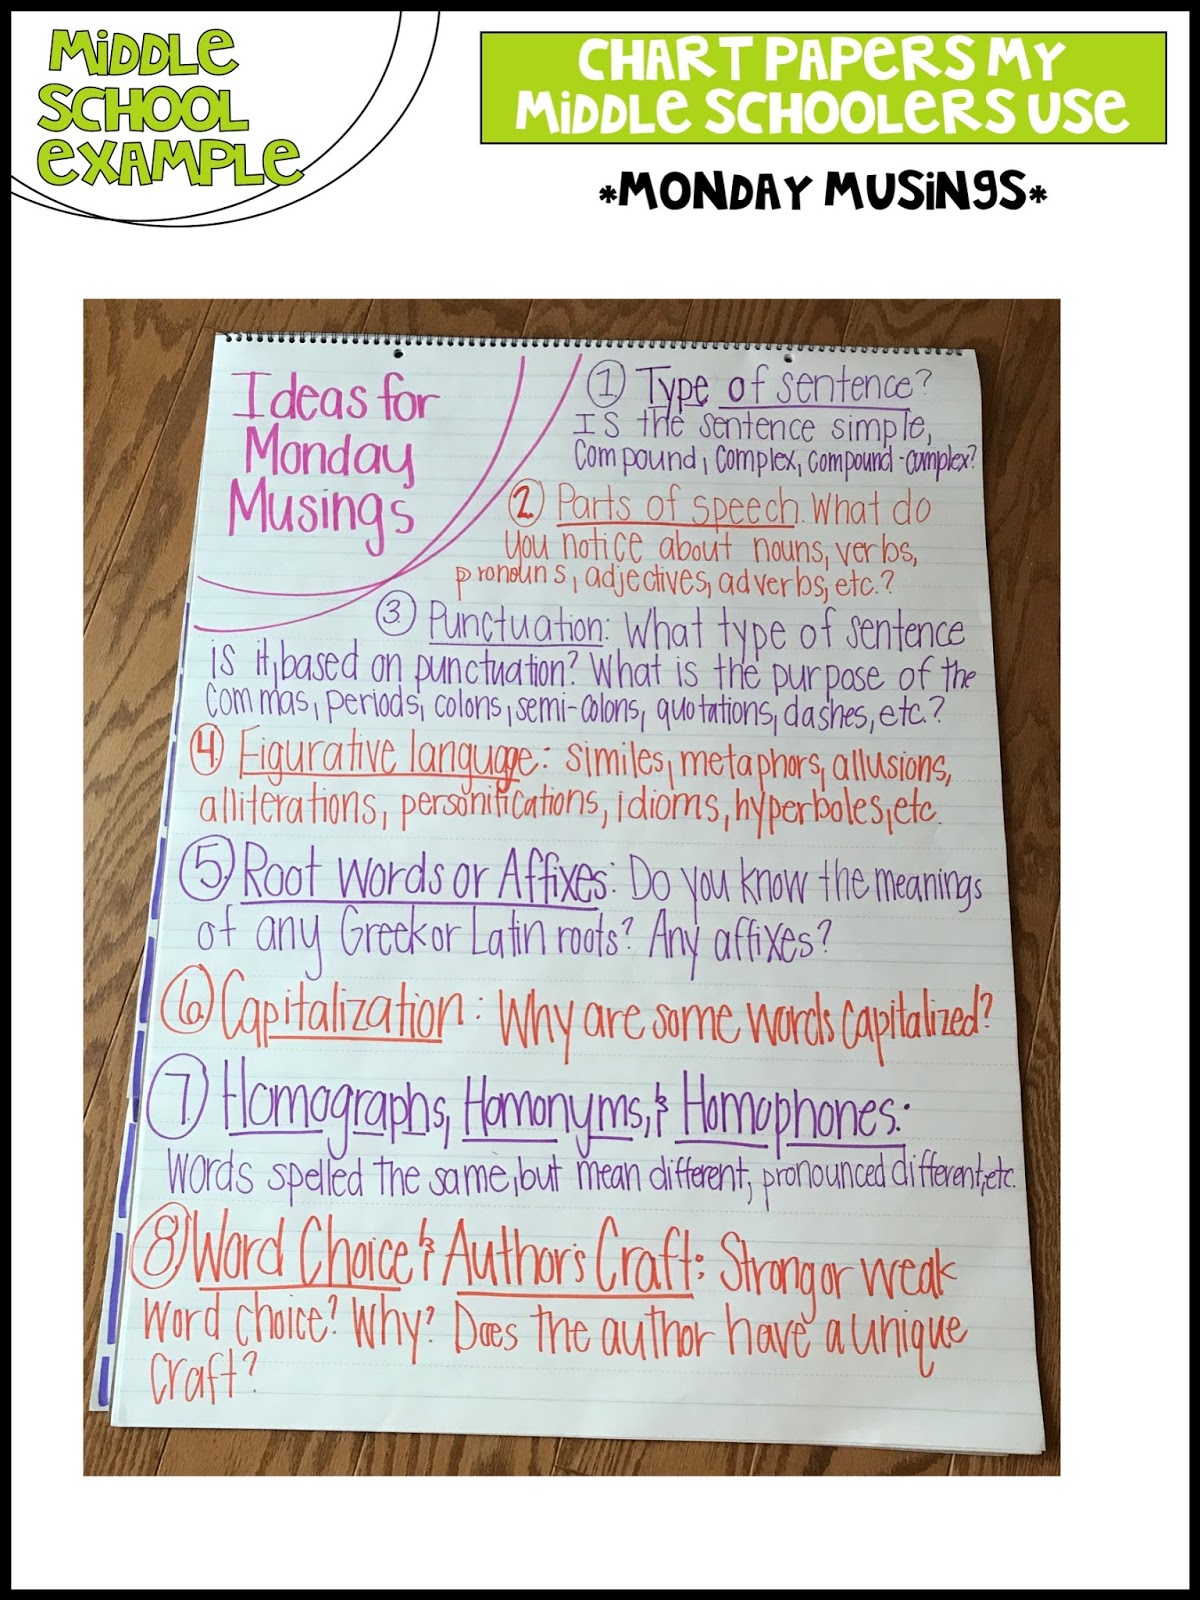 MiDDLE
SCHOOL
EXAMPLE
CHART PAPERS MY
MiDDLE SCHOOLERS USE
*MONDAY MUSiNGS*
Ideas for
Monday
Musings
① Type of sentence?
Is the sentence simple,
compound, complex, compound-complex?
② Parts of speech. What do
you notice about nouns, verbs,
pronouns, adjectives, adverbs, etc.?
③ Punctuation: What type of sentence
is it, based on punctuation? What is the purpose of the
commas, periods, colons, semi-colons, quotations, dashes, etc.?
④ Figurative language: similes, metaphors, allusions,
alliterations, personifications, idioms, hyperboles, etc.
⑤ Root words or Affixes: Do you know the meanings
of any Greek or Latin roots? Any affixes?
⑥ Capitalization: Why are some words capitalized?
⑦ Homographs, Homonyms, & Homophones:
words spelled the same, but mean different, pronounced different, etc.
⑧ Word Choice & Author's Craft: Strong or weak
word choice? Why? Does the author have a unique
craft?